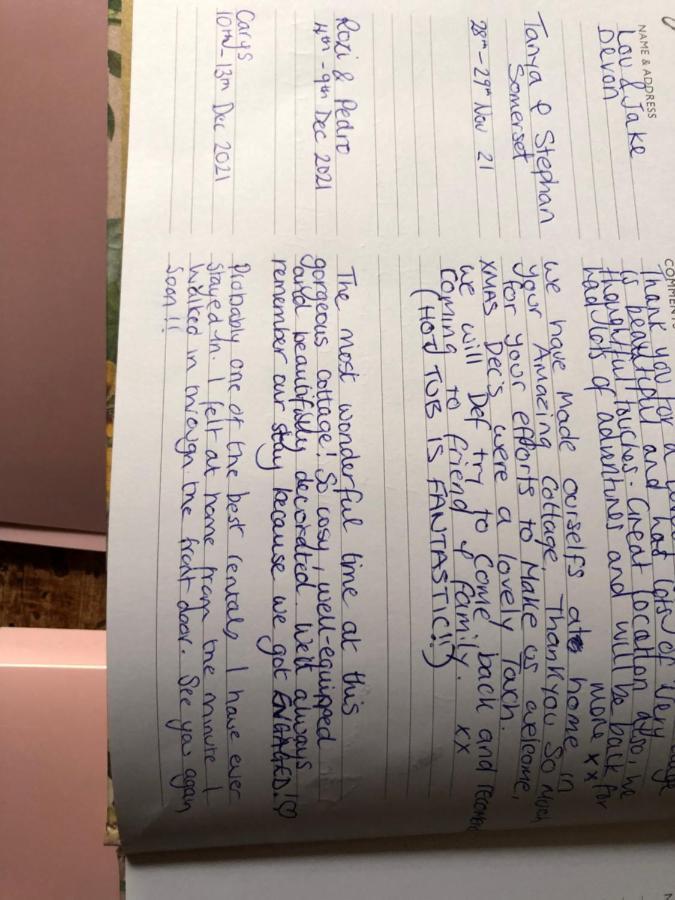 NAME & ADDRESS
COMMENTS
Lou & Jake
Devon
Thank you for a
is beautiful and had lots of very
thoughtful touches. Great location also, we
had lots of adventures and will be back for
more xx
Tanya & Stephan
Somerset
28th - 29th Nov 21
We have Made ourselfs at home in
your Amazing Cottage, Thankyou So Much
for your efforts to Make us welcome,
XMAS Dec's were a lovely Tach.
we will Def try to Come back and
Coming to friend & family. xx
(HOT TUB IS FANTASTIC!!)
Roxi & Pedro
4th - 9th Dec 2021
The most wonderful time at this
gorgeous cottage! So cosy, well-equipped
and beautifully decorated. We'll always
remember our stay because we got ENGAGED!♡
Carys
10th - 13th Dec 2021
Probably one of the best rentals I have ever
stayed in. I felt at home from the minute I
walked in through the front door. See you again
soon!!